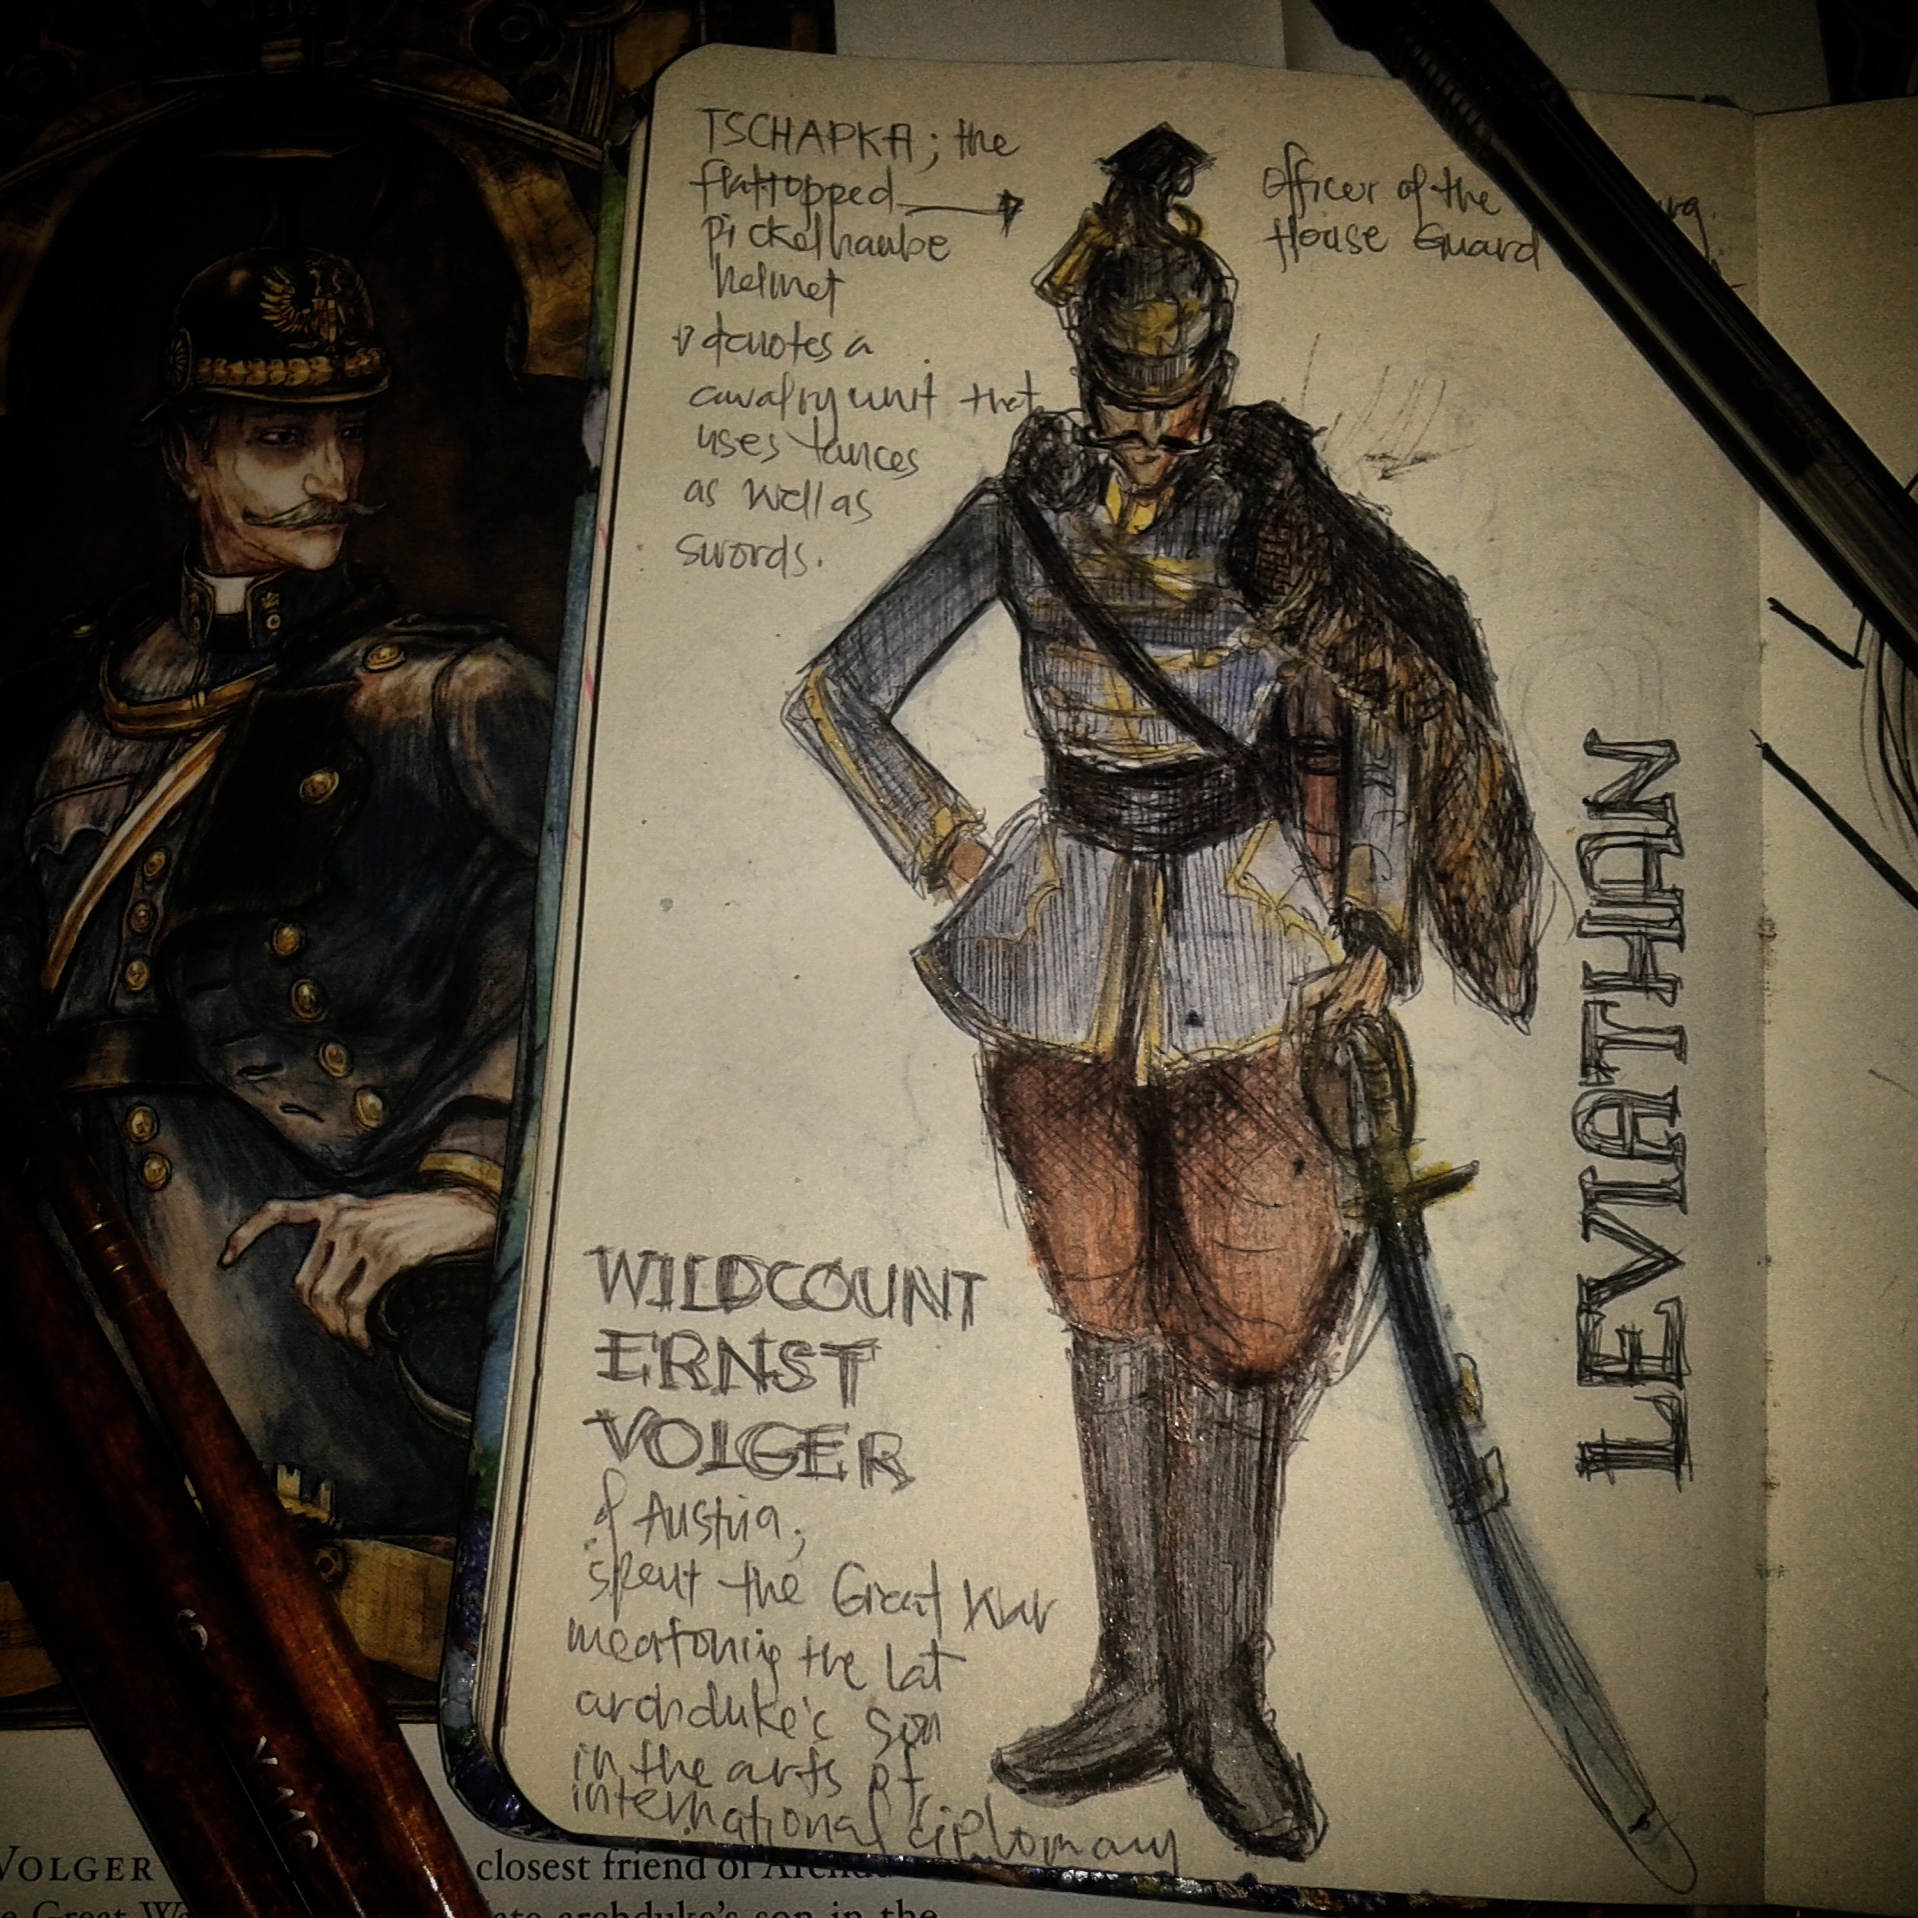 TSCHAPKA; the
flattopped
pickelhaube
helmet
denotes a
cavalry unit that
uses lances
as well as
swords.
Officer of the
House Guard
LEVIATHAN
WILDCOUNT
ERNST
VOLGER
of Austria;
spent the Great War
the lat
archduke's son
in the arts of
international diplomacy
VOLGER
closest friend of
archduke's son in the